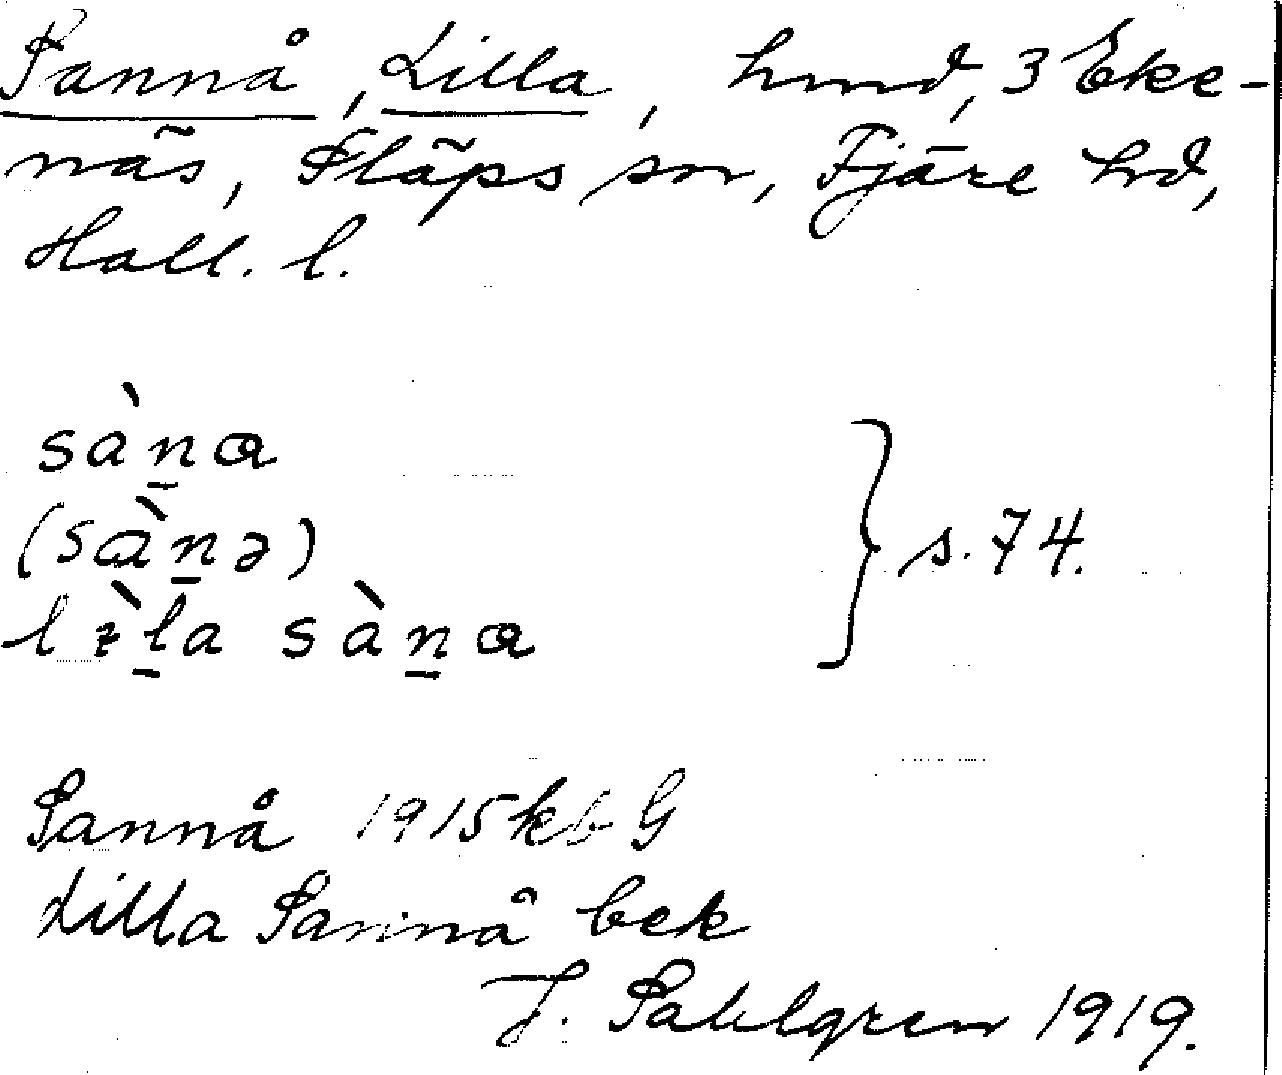 Sannå, Lilla, hmd, 3 Eke-
näs, Släps sn, Fjäre hd,
Hall. l.
sàn̲ɑ
(sɑ̀n̲ə)
l l̲a sàn̲ɑ
s. 74.
Sannå 1915 kb G
Lilla Sannå bek
J. Sahlgren 1919.